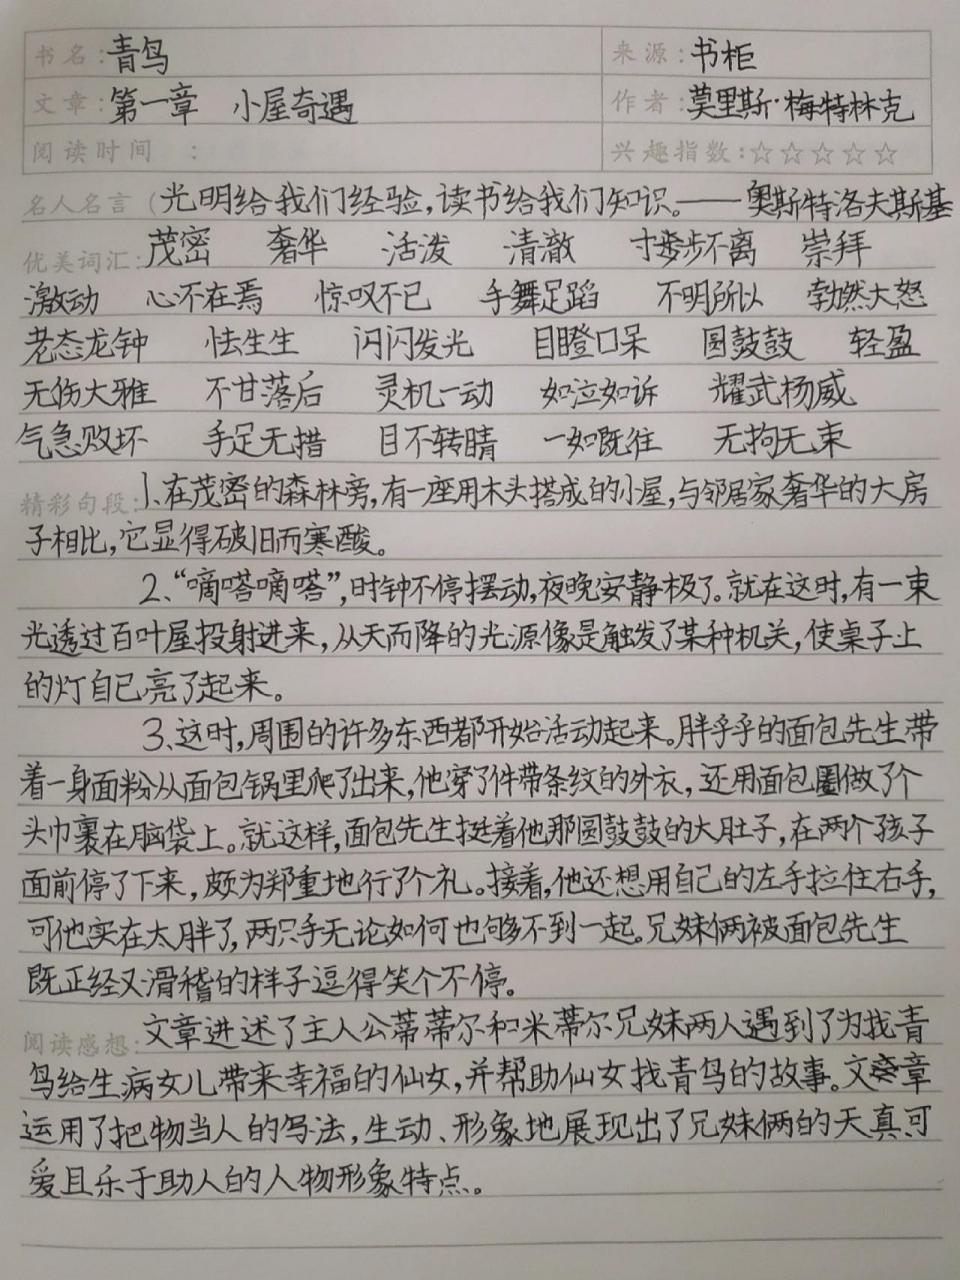 书名：青鸟 来源：书柜
文章：第一章 小屋奇遇 作者：莫里斯·梅特林克
阅读时间： 兴趣指数：☆☆☆☆☆
名人名言（光明给我们经验，读书给我们知识。——奥斯特洛夫斯基
优美词汇：茂密 奢华 活泼 清澈 寸步不离 崇拜
激动 心不在焉 惊叹不已 手舞足蹈 不明所以 勃然大怒
老态龙钟 怯生生 闪闪发光 目瞪口呆 圆鼓鼓 轻盈
无伤大雅 不甘落后 灵机一动 如泣如诉 耀武杨威
气急败坏 手足无措 目不转睛 一如既往 无拘无束
精彩句段：1、在茂密的森林旁，有一座用木头搭成的小屋，与邻居家奢华的大房
子相比，它显得破旧而寒酸。
2、“嘀嗒嘀嗒”，时钟不停摆动，夜晚安静极了。就在这时，有一束
光透过百叶屋投射进来，从天而降的光源像是触发了某种机关，使桌子上
的灯自己亮了起来。
3、这时，周围的许多东西都开始活动起来。胖乎乎的面包先生带
着一身面粉从面包锅里爬了出来，他穿了件带条纹的外衣，还用面包圈做了个
头巾裹在脑袋上。就这样，面包先生挺着他那圆鼓鼓的大肚子，在两个孩子
面前停了下来，颇为郑重地行了个礼。接着，他还想用自己的左手拉住右手，
可他实在太胖了，两只手无论如何也够不到一起。兄妹俩被面包先生
既正经又滑稽的样子逗得笑个不停。
阅读感想：文章讲述了主人公蒂蒂尔和米蒂尔兄妹两人遇到了为找青
鸟给生病女儿带来幸福的仙女，并帮助仙女找青鸟的故事。文章
运用了把物当人的写法，生动、形象地展现出了兄妹俩的天真可
爱且乐于助人的人物形象特点。